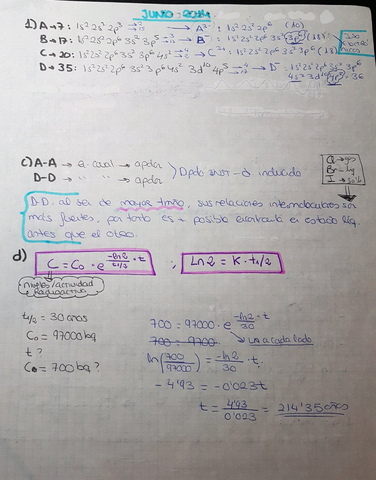 JUNIO-2014
1) A→7: 1s²2s²2p³ → A³⁻: 1s²2s²2p⁶ (10)
B→17: 1s²2s²2p⁶3s²3p⁵ → B⁻: 1s²2s²2p⁶3s²3p⁶ (18)
C→20: 1s²2s²2p⁶3s²3p⁶4s² → C²⁺: 1s²2s²2p⁶3s²3p⁶ (18)
D→35: 1s²2s²2p⁶3s²3p⁶4s²3d¹⁰4p⁵ → D⁻: 1s²2s²2p⁶3s²3p⁶
4s²3d¹⁰4p⁶ = 36
c) A-A → e. coval → apolar
D-D → " " → apolar
Dpolo inst - d. inducido
Cl → gas
Br → líq
I → sólido
D-D. al ser de mayor tmño, sus relaciones intermoleculares son
más fuertes, por tanto es + posible encontrarlo en estado líq.
antes que el otro.
d) C = C₀ · e^(-ln2/t1/2 · t) ; Ln2 = K · t1/2
niveles/actividad
Radioactiva
t1/2 = 30 años
C₀ = 97000 bq
t?
C = 700 bq?
700 = 97000 · e^(-ln2/30 · t)
700 = 97000
Ln a cada lado
ln(700/97000) = -ln2/30 · t
-4'93 = -0'023t
t = 4'93/0'023 = 214'35 años